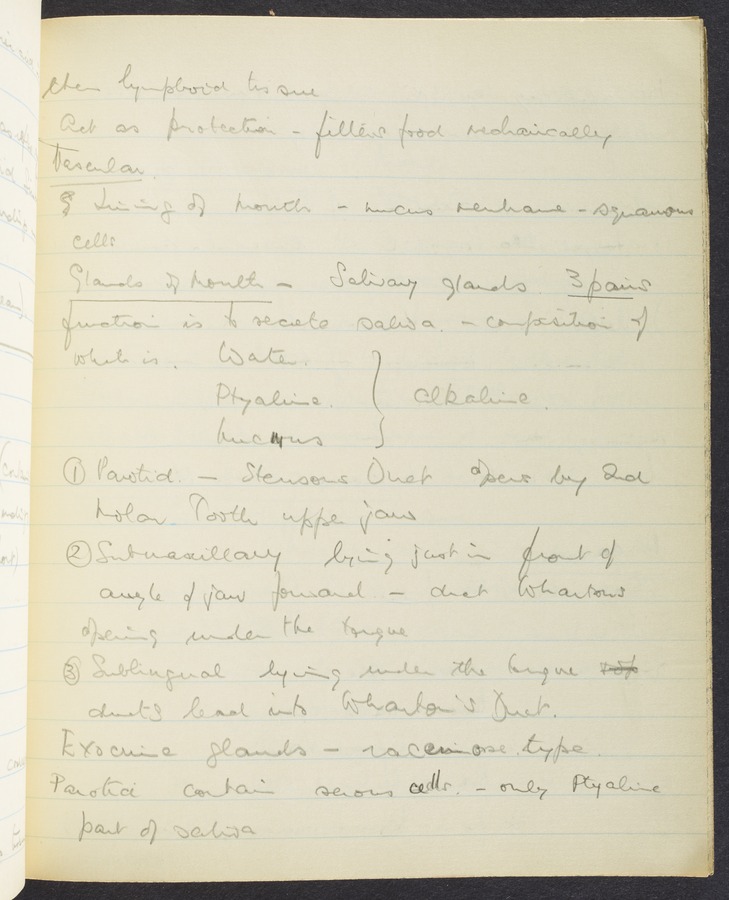 lymphoid tissue
Act as protection - filters food mechanically
Vascular.
Lining of mouth - mucus membrane - squamous
cells
Glands of Mouth - Salivary glands. 3 pairs
function is to secrete saliva. - composition of
which is. Water.
Ptyaline. } alkaline.
Mucus
① Parotid. - Stensons Duct opens by 2nd
Molar Tooth upper jaw
② Submaxillary lying just in front of
angle of jaw forward - duct Whartons
opening under the tongue
③ Sublingual lying under the tongue
ducts lead into Wharton's Duct.
Exocrine glands - racemose type.
Parotid contain serous cells. - only Ptyaline
part of saliva